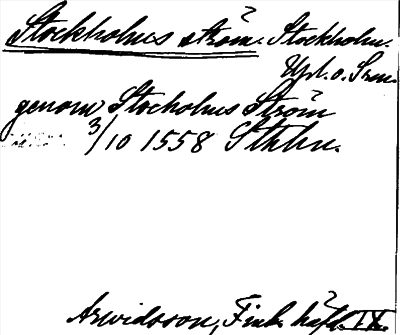 Stockholms ström. Stockholm.
Upl. o. Srm.
genom Stocholms Ström
3/10 1558 Sthlm.
Arwidsson, Finl. häfd. IX.